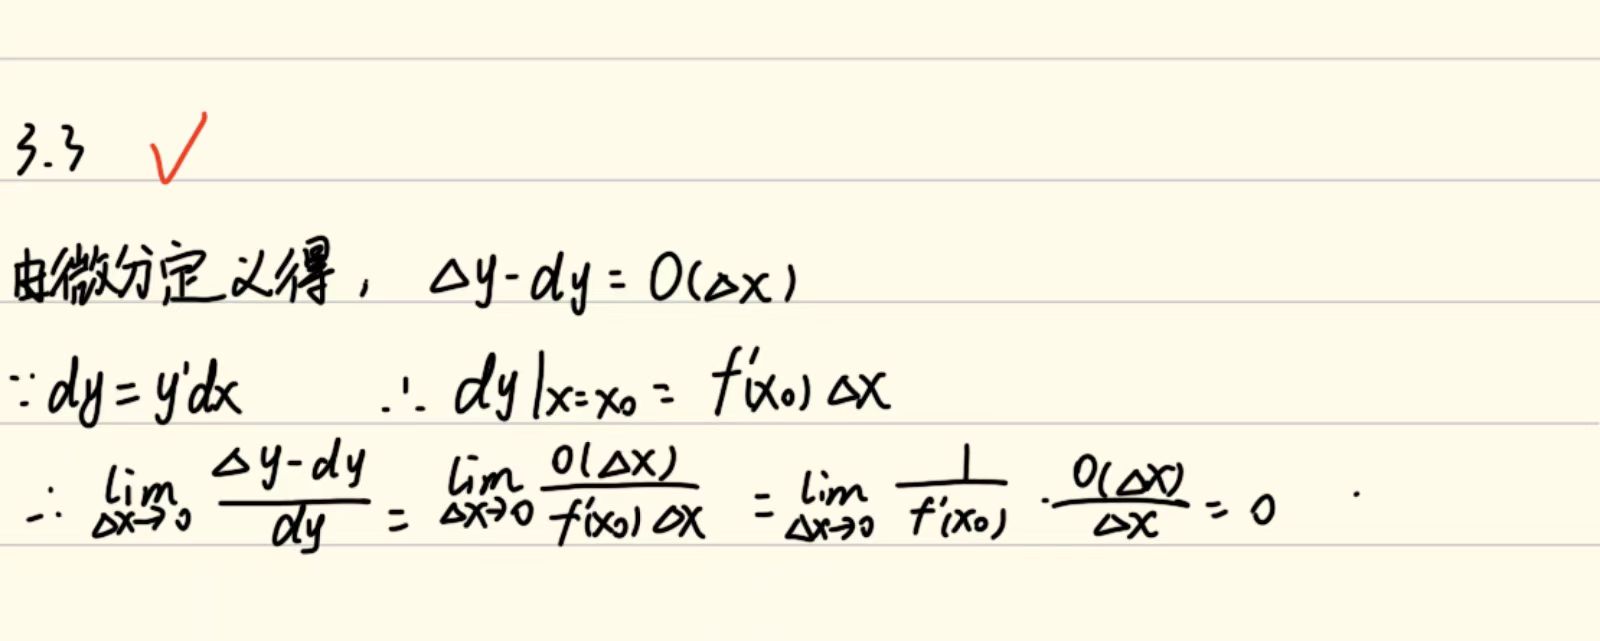 3.3 ✓
由微分定义得， Δy-dy=O(Δx)
∵dy=y'dx ∴ dy|x=x₀ = f'(x₀)Δx
∴ lim Δx→0 (Δy-dy)/dy = lim Δx→0 O(Δx)/(f'(x₀)Δx) = lim Δx→0 1/f'(x₀) · O(Δx)/Δx = 0